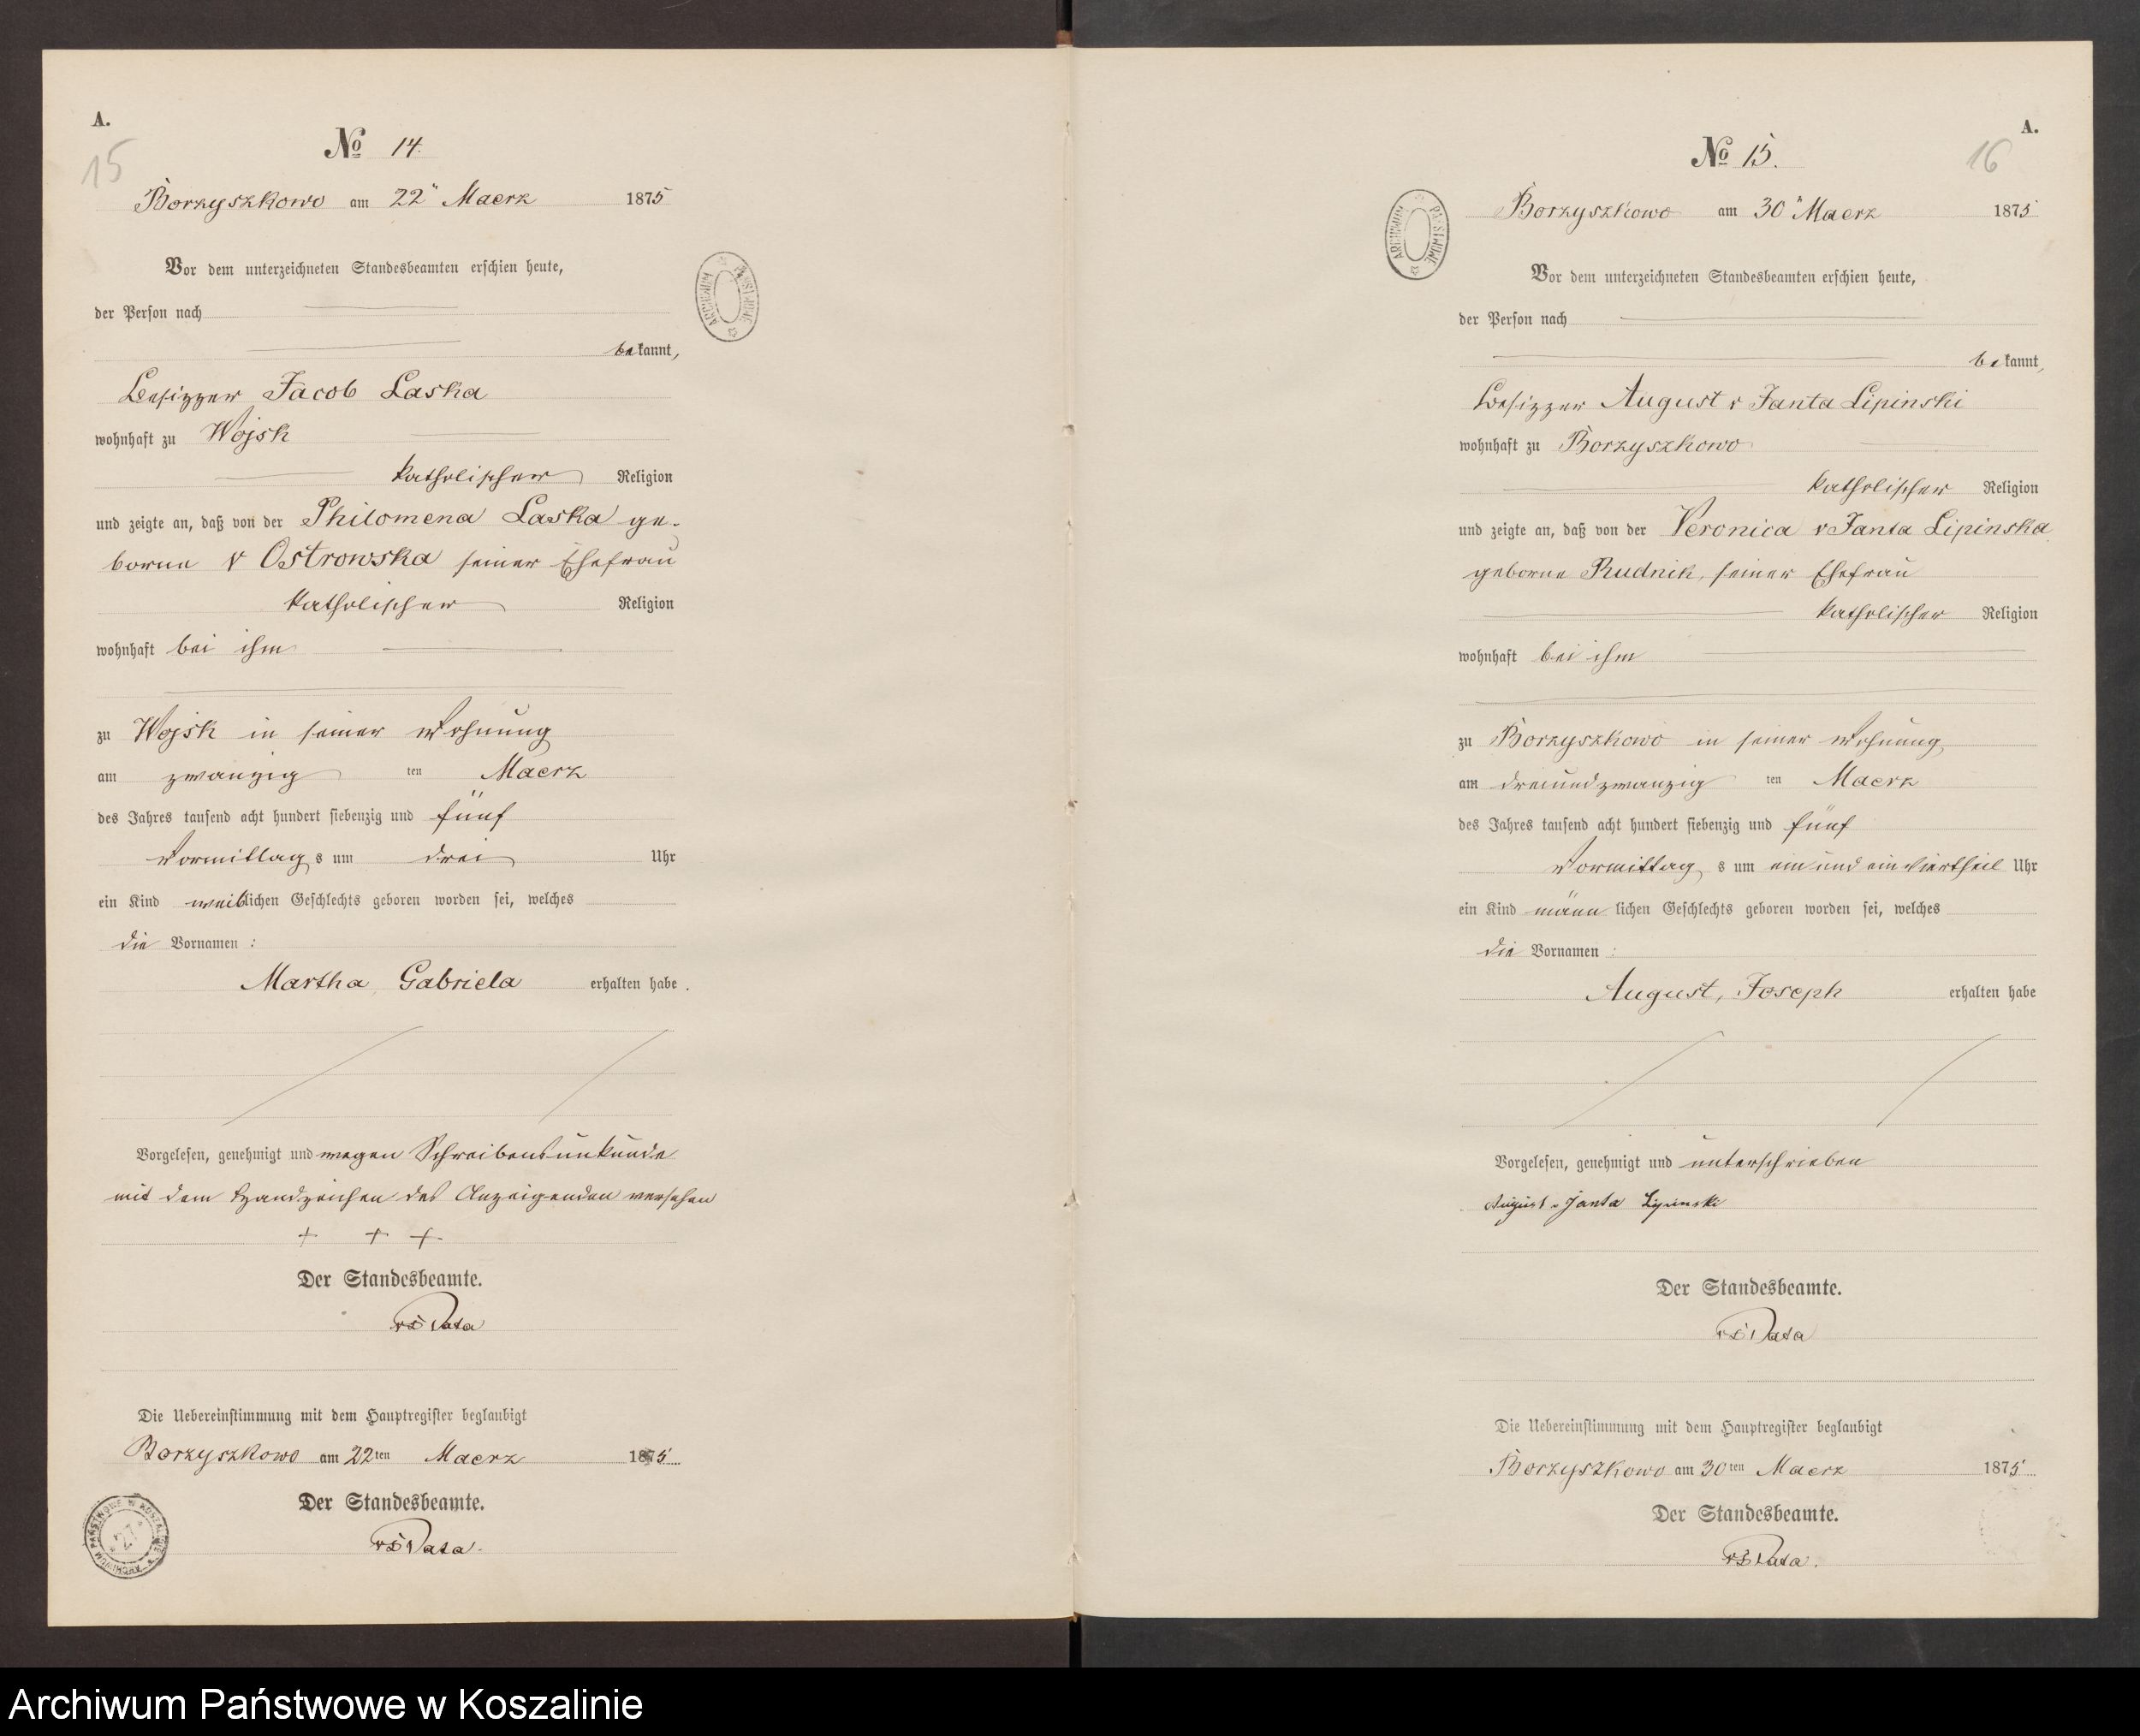 A.
15
No 14.
Borzyszkowo am 22" Maerz 1875
Vor dem unterzeichneten Standesbeamten erschien heute,
der Person nach
bekannt,
Besizzer Jacob Laska
wohnhaft zu Wojsk
katholischer Religion
und zeigte an, daß von der Philomena Laska ge-
borne v Ostrowska seiner Ehefrau
katholischer Religion
wohnhaft bei ihm
zu Wojsk in seiner Wohnung
am zwanzig ten Maerz
des Jahres tausend acht hundert siebenzig und fünf
Vormittag s um drei Uhr
ein Kind weiblichen Geschlechts geboren worden sei, welches
die Vornamen :
Martha, Gabriela erhalten habe.
Vorgelesen, genehmigt und wegen Schreibensunkunde
mit dem Handzeichen des Anzeigenden versehen
+ + +
Der Standesbeamte.
Die Uebereinstimmung mit dem Hauptregister beglaubigt
Borzyszkowo am 22ten Maerz 1875
Der Standesbeamte.
ARCHIWUM PAŃSTWOWE
ARCHIWUM PAŃSTWOWE W KOSZALINIE
27
A.
16
No 15.
Borzyszkowo am 30" Maerz 1875
Vor dem unterzeichneten Standesbeamten erschien heute,
der Person nach
bekannt,
Besizzer August v Janta Lipinski
wohnhaft zu Borzyszkowo
katholischer Religion
und zeigte an, daß von der Veronica v Janta Lipinska
geborne Rudnik, seiner Ehefrau
katholischer Religion
wohnhaft bei ihm
zu Borzyszkowo in seiner Wohnung
am dreiundzwanzig ten Maerz
des Jahres tausend acht hundert siebenzig und fünf
Vormittag s um ein und ein Viertheil Uhr
ein Kind männ lichen Geschlechts geboren worden sei, welches
die Vornamen :
August, Joseph erhalten habe
Vorgelesen, genehmigt und unterschrieben
August v Janta Lipinski
Der Standesbeamte.
Die Uebereinstimmung mit dem Hauptregister beglaubigt
Borzyszkowo am 30ten Maerz 1875
Der Standesbeamte.
ARCHIWUM PAŃSTWOWE
Archiwum Państwowe w Koszalinie